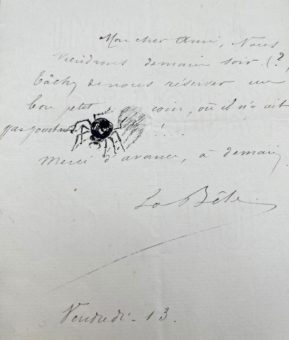 Mon cher Ami, Nous
viendrons demain soir (?)
tâchez de nous réserver un
bon petit coin, où il n'y ait
pas
Merci d'avance, à demain
La Bête
Vendredi - 13.